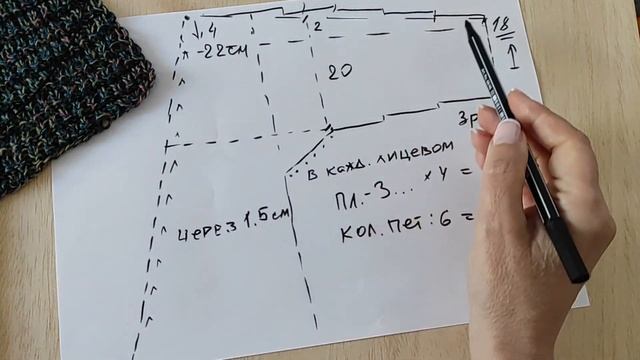 4
2
18
-22см
20
3р
В кажд. лицевом
Пл.-3... × 4 =
через 1.5см
кол. пет: 6 =